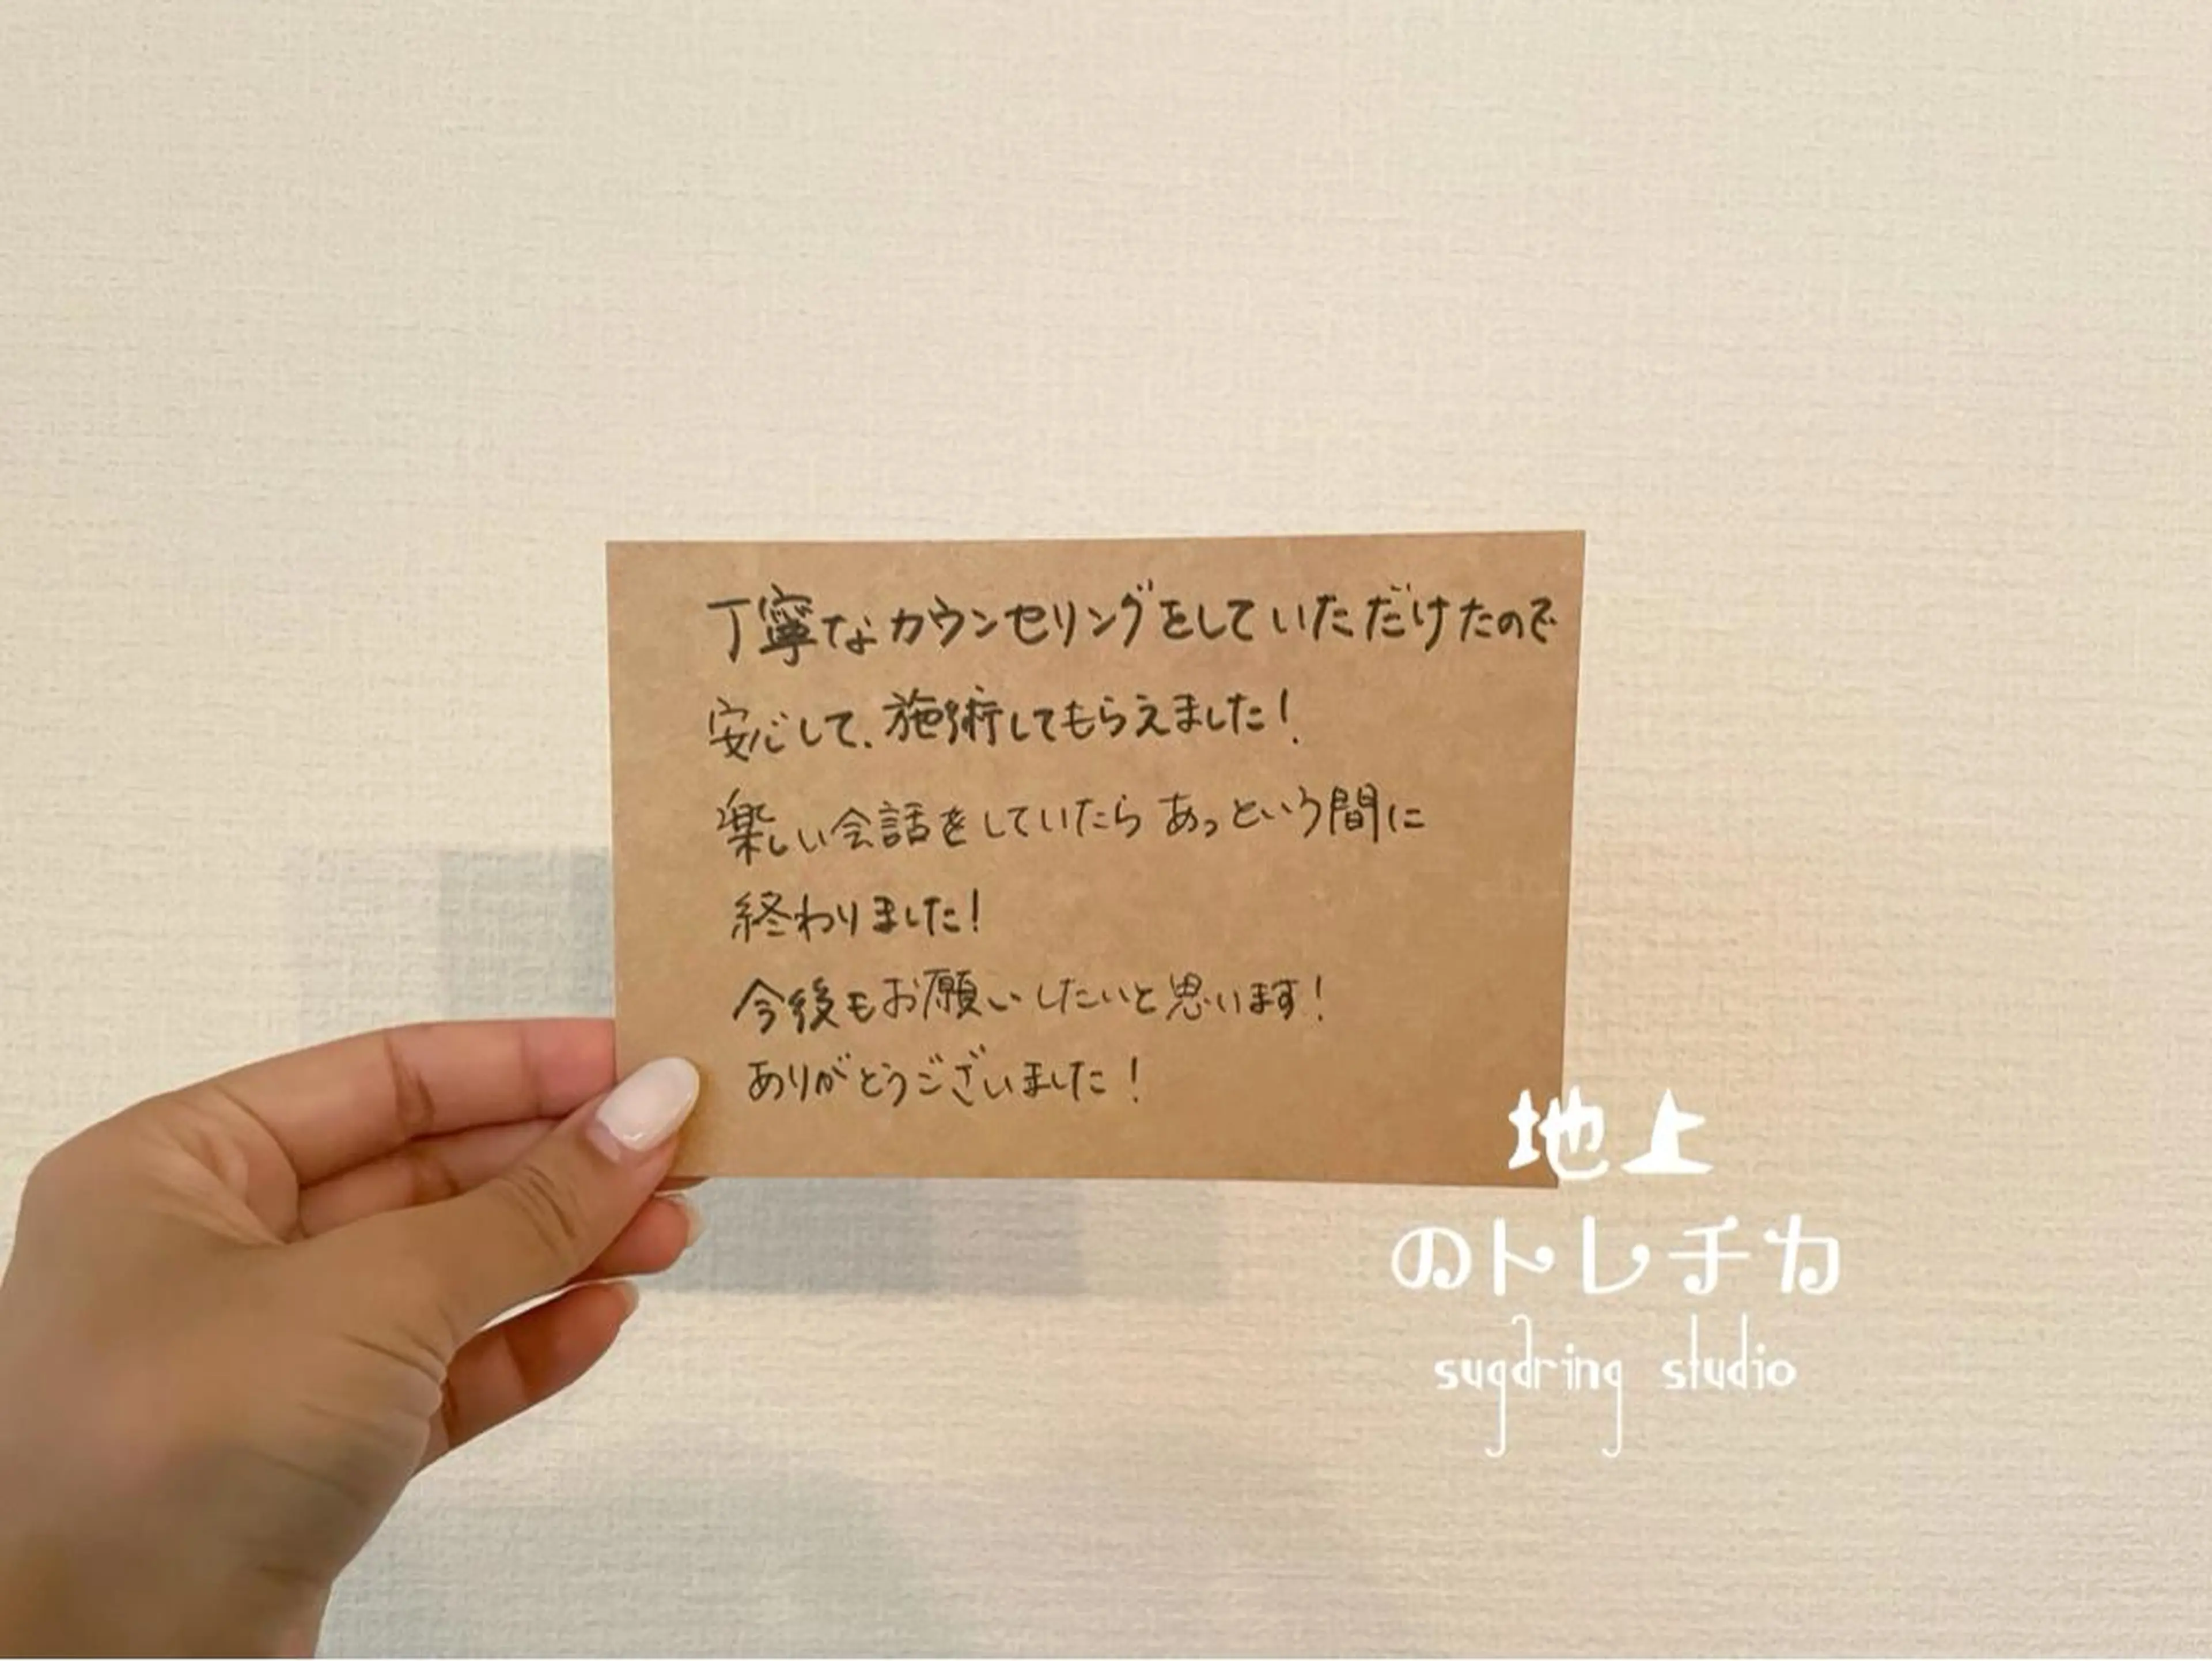 丁寧なカウンセリングをしていただけたので
安心して、施術してもらえました！
楽しい会話をしていたらあっという間に
終わりました！
今後もお願いしたいと思います！
ありがとうございました！
地上
のトレチカ
sugdring studio